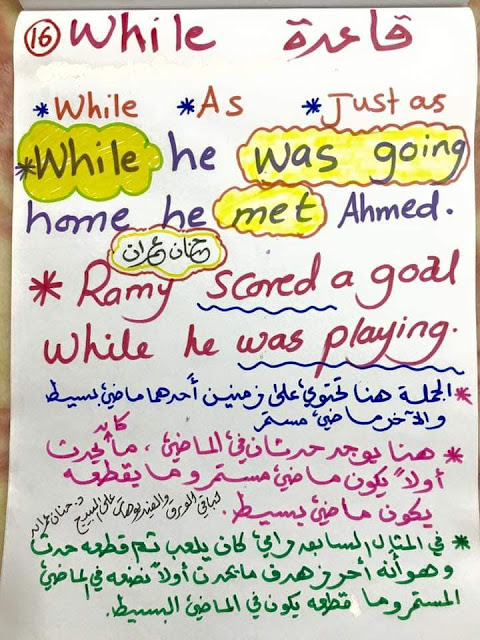 16 While قاعدة
* While * As * Just as
* While he was going
home he met Ahmed.
حنان عمران
* Ramy scored a goal
while he was playing.
* الجملة هنا تحتوي على زمنين أحدهما ماضي بسيط
والآخر ماضي مستمر
* هنا يوجد حدثان في الماضي، ما كان يحدث
أولاً يكون ماضي مستمر وما يقطعه
يكون ماضي بسيط.
لباقي الورق والفيديوهات على البيدج د. حنان عمران
* في المثال السابق رامي كان يلعب ثم قطعه حدث
وهو أنه أحرز هدف ما يحدث أولاً نضعه في الماضي
المستمر وما قطعه يكون في الماضي البسيط.